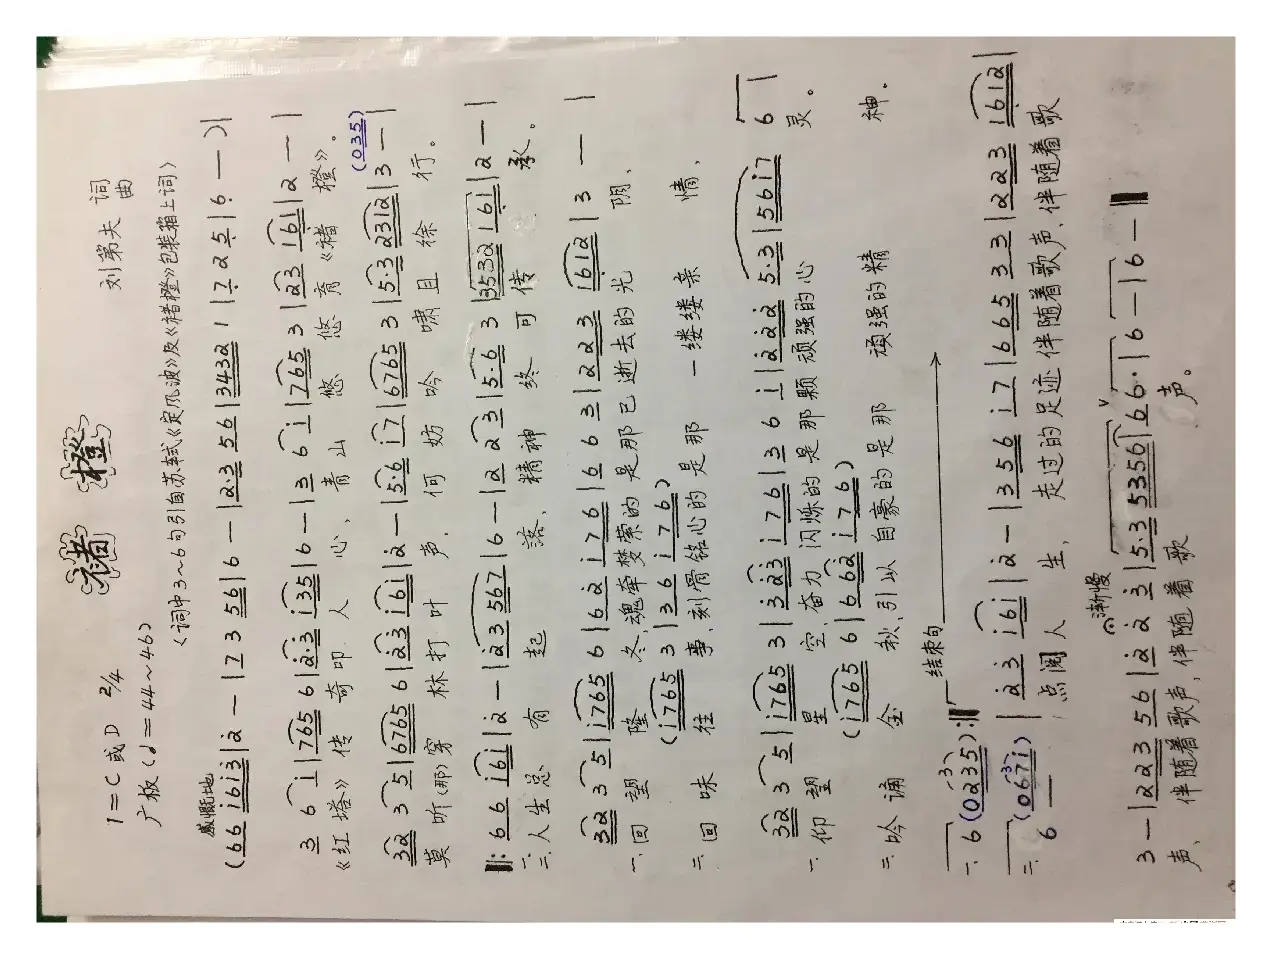 褚橙
1=C 或 D 2/4
刘第夫 词曲
广板(♩=44~46)
《词中3~6句引自苏轼《定风波》及《褚橙》包装箱上词》
感慨地
(66 i6i3|2 — |7 3 56|6 — |2·3 56|3432 1|7 2 5|6 — )|
3 6 i|765 6|2·3 i35|6 — |3 6 i|765 3|23 161|2 — |
《红塔》传奇叩人心,青山悠悠育《褚橙》。
(035)
32 3 5|6765 6|2 3 i6i|2 — |5·6 i7|6765 3|5·3 2312|3 — |
莫听(那)穿林打叶声,何妨吟啸且徐行。
‖: 6 6 i6i|2 — |i23 567|6 — |2 2 3|5·6 3|3532 161|2 — |
一.二.人生总有起落,精神终可传承。
32 3 5|i765 6|6 2 i76|6 6 3|2 2 3 1612|3 — |
一.回望隆冬,魂牵梦萦的是那已逝去的光阴、
(i765 3|3 6 i76)
二.回味往事,刻骨铭心的是那一缕缕亲情,
32 3 5|i765 3|323 i76|3 6 i|222 5·3|56i7 6|
一.仰望星空,奋力闪烁的是那颗顽强的心灵。
(i765 6|662 i76)
二.吟诵金秋,引以自豪的是那顽强的精神。
结束句
一.6(0235):‖
二.6 — (067i)|2 3 i6i|2 — |356 i7|665 3 3|223 1612|
点阅人生,走过的足迹伴随着歌声、伴随着歌
渐慢
3 — |223 56|2 2 3|5·3 5356|66·|6 — |6 — ‖
声、伴随着歌声,伴随着歌声。